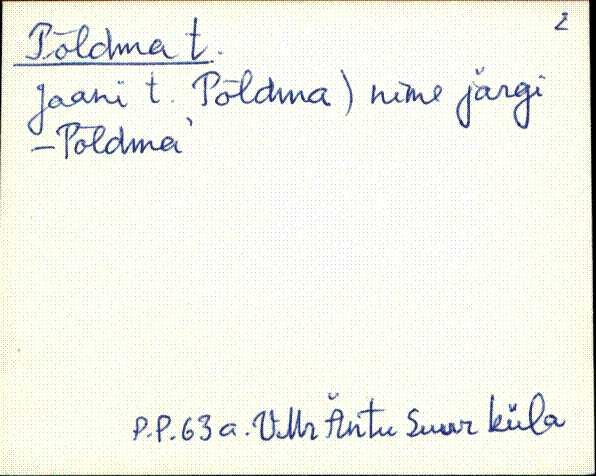 2
Põldma t.
Jaani t. Põldma) nime järgi
– Põldma`
P.P. 63 a. VMr Äntu Suur küla